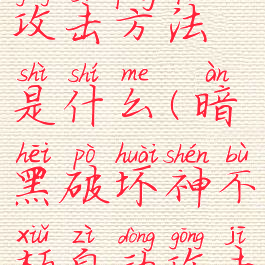 攻击方法
shì shí me àn
是什么(暗
hēi pò huài shén bù
黑破坏神不
xiǔ zì dòng gōng jī
朽自动攻击